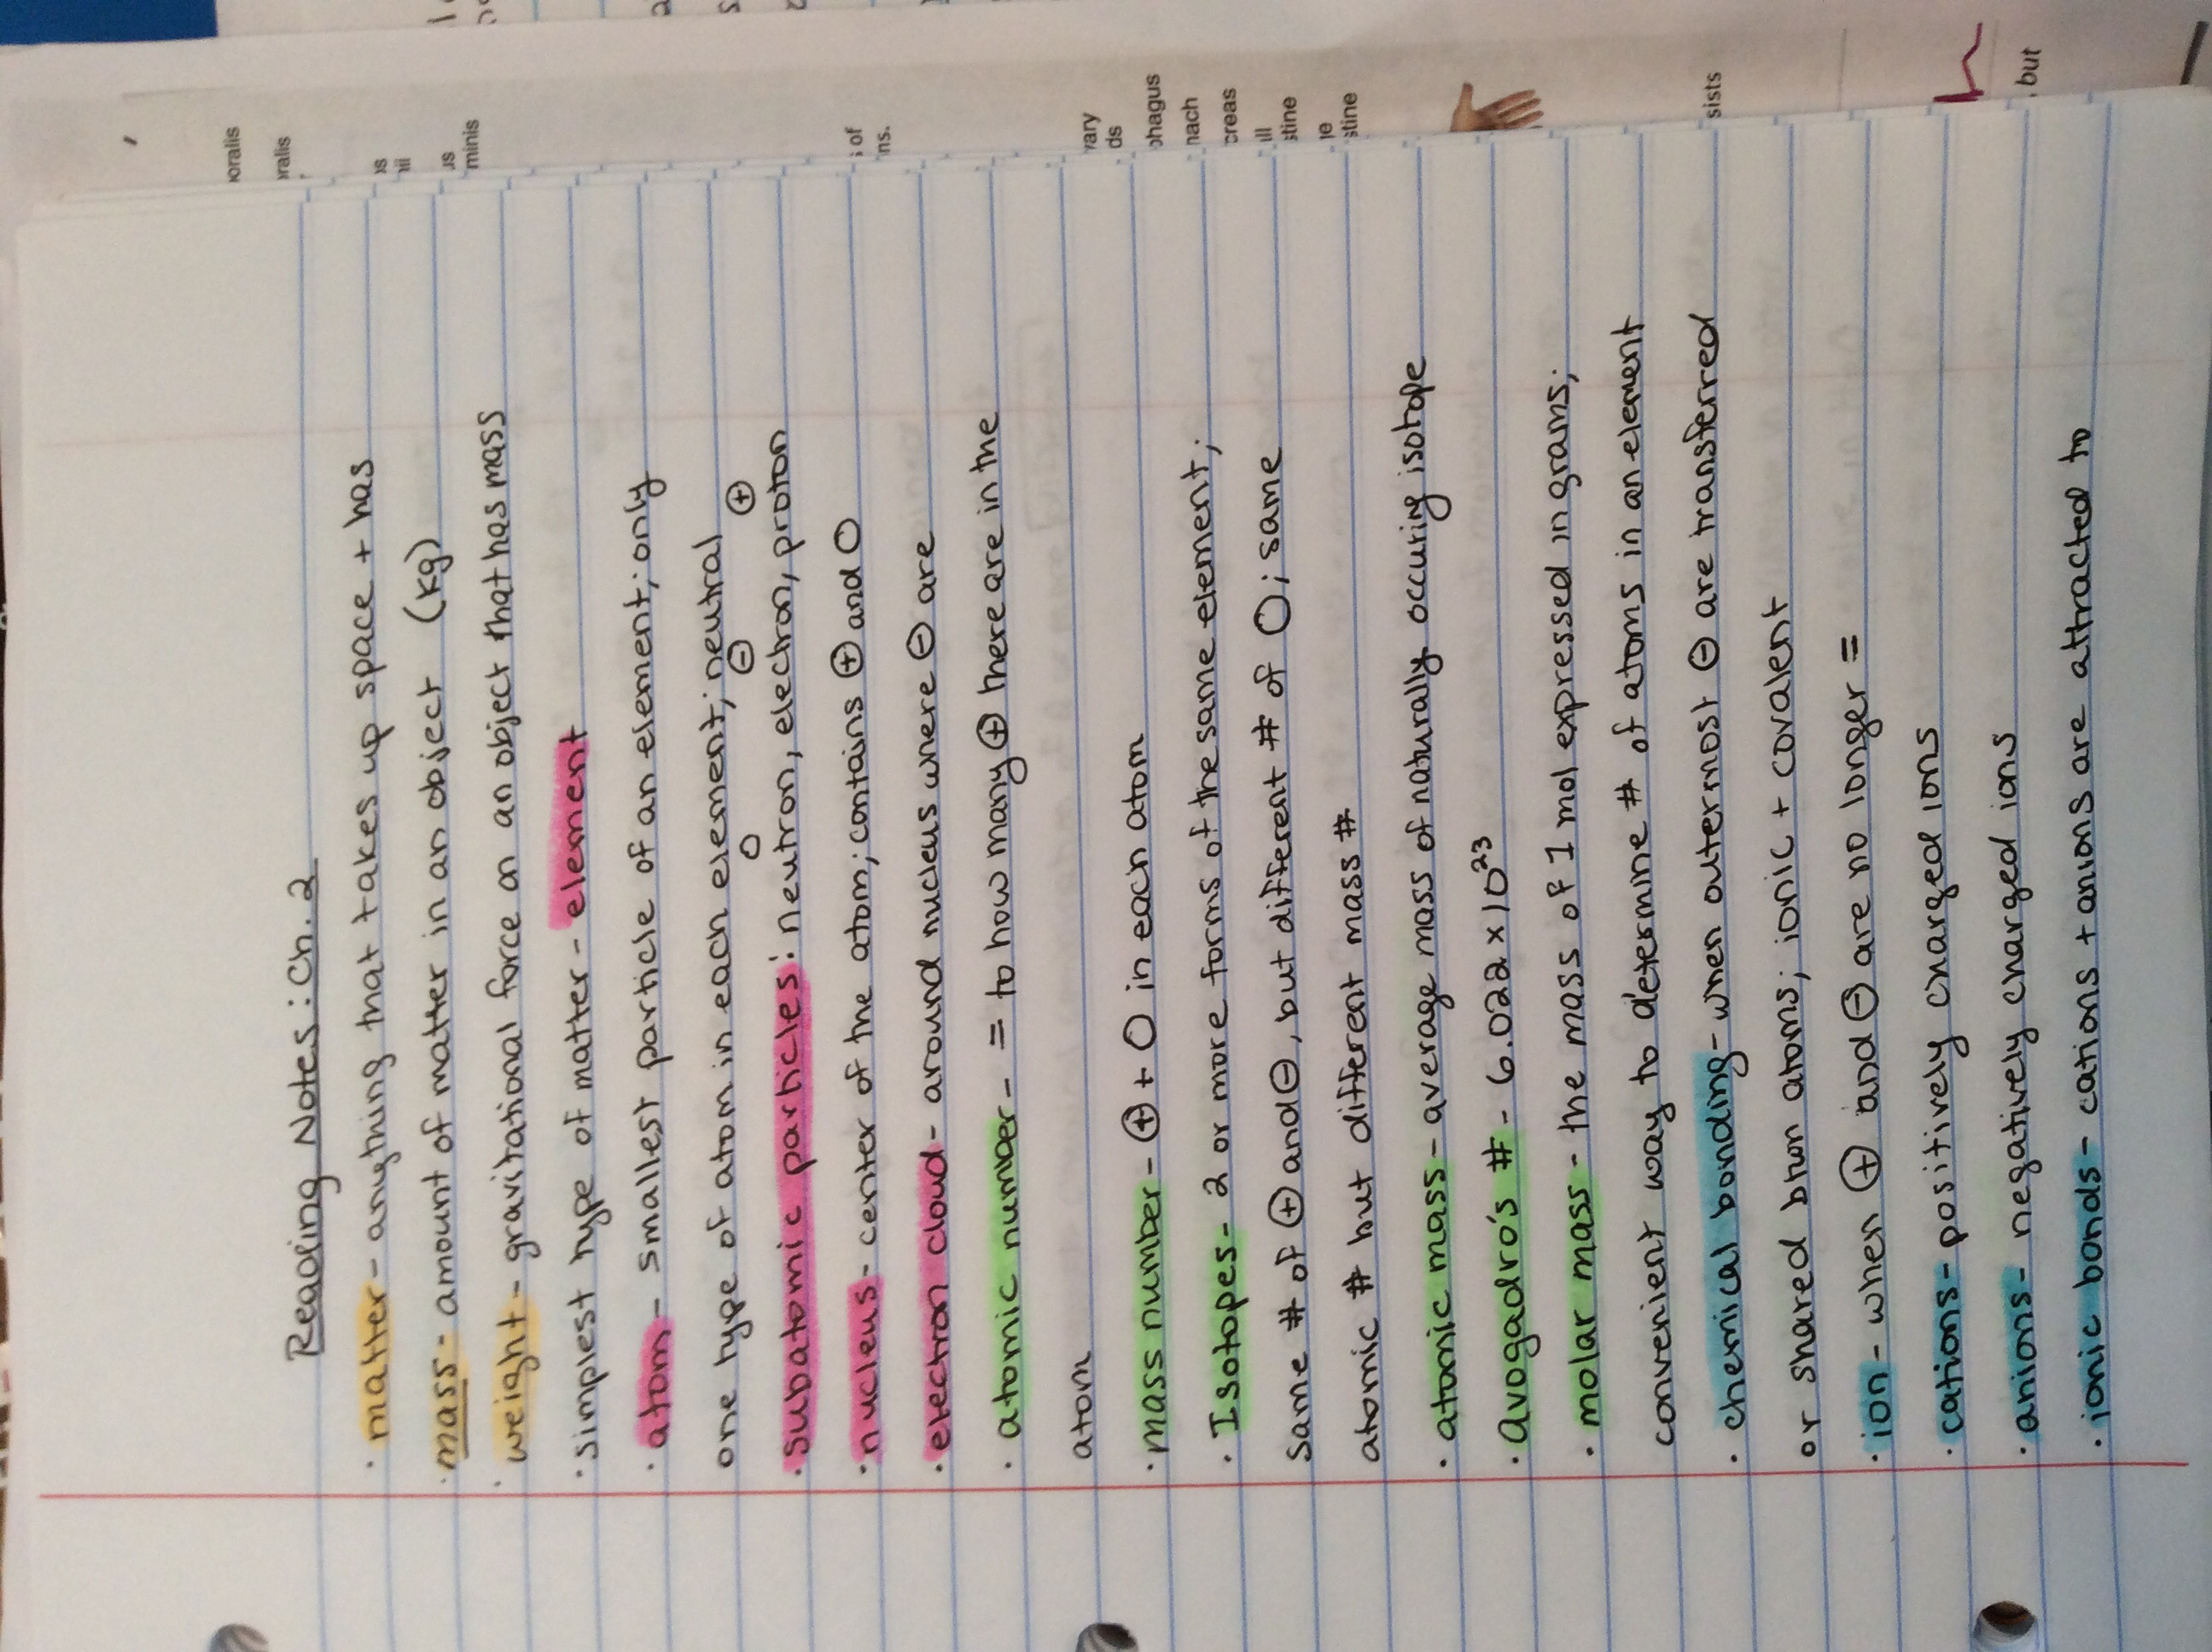 Reading Notes: Ch. 2
· matter - anything that takes up space + has
· mass - amount of matter in an object (kg)
· weight - gravitational force on an object that has mass
· simplest type of matter - element
· atom - smallest particle of an element; only
one type of atom in each element; neutral
○ ⊖ ⊕
· subatomic particles: neutron, electron, proton
· nucleus - center of the atom; contains ⊕ and ○
· electron cloud - around nucleus where ⊖ are
· atomic number - = to how many ⊕ there are in the
atom
· mass number - ⊕ + ○ in each atom
· Isotopes - 2 or more forms of the same element;
same # of ⊕ and ⊖, but different # of ○; same
atomic # but different mass #
· atomic mass - average mass of naturally occuring isotope
· Avogadro's # - 6.022 x 10²³
· molar mass - the mass of 1 mol expressed in grams;
convenient way to determine # of atoms in an element
· chemical bonding - when outermost ⊖ are transferred
or shared btwn atoms; ionic + covalent
· ion - when ⊕ and ⊖ are no longer =
· cations - positively charged ions
· anions - negatively charged ions
· ionic bonds - cations + anions are attracted to
oralis
ralis
us
minis
s of
ns.
vary
ds
phagus
nach
creas
ll
stine
je
stine
sists
, but